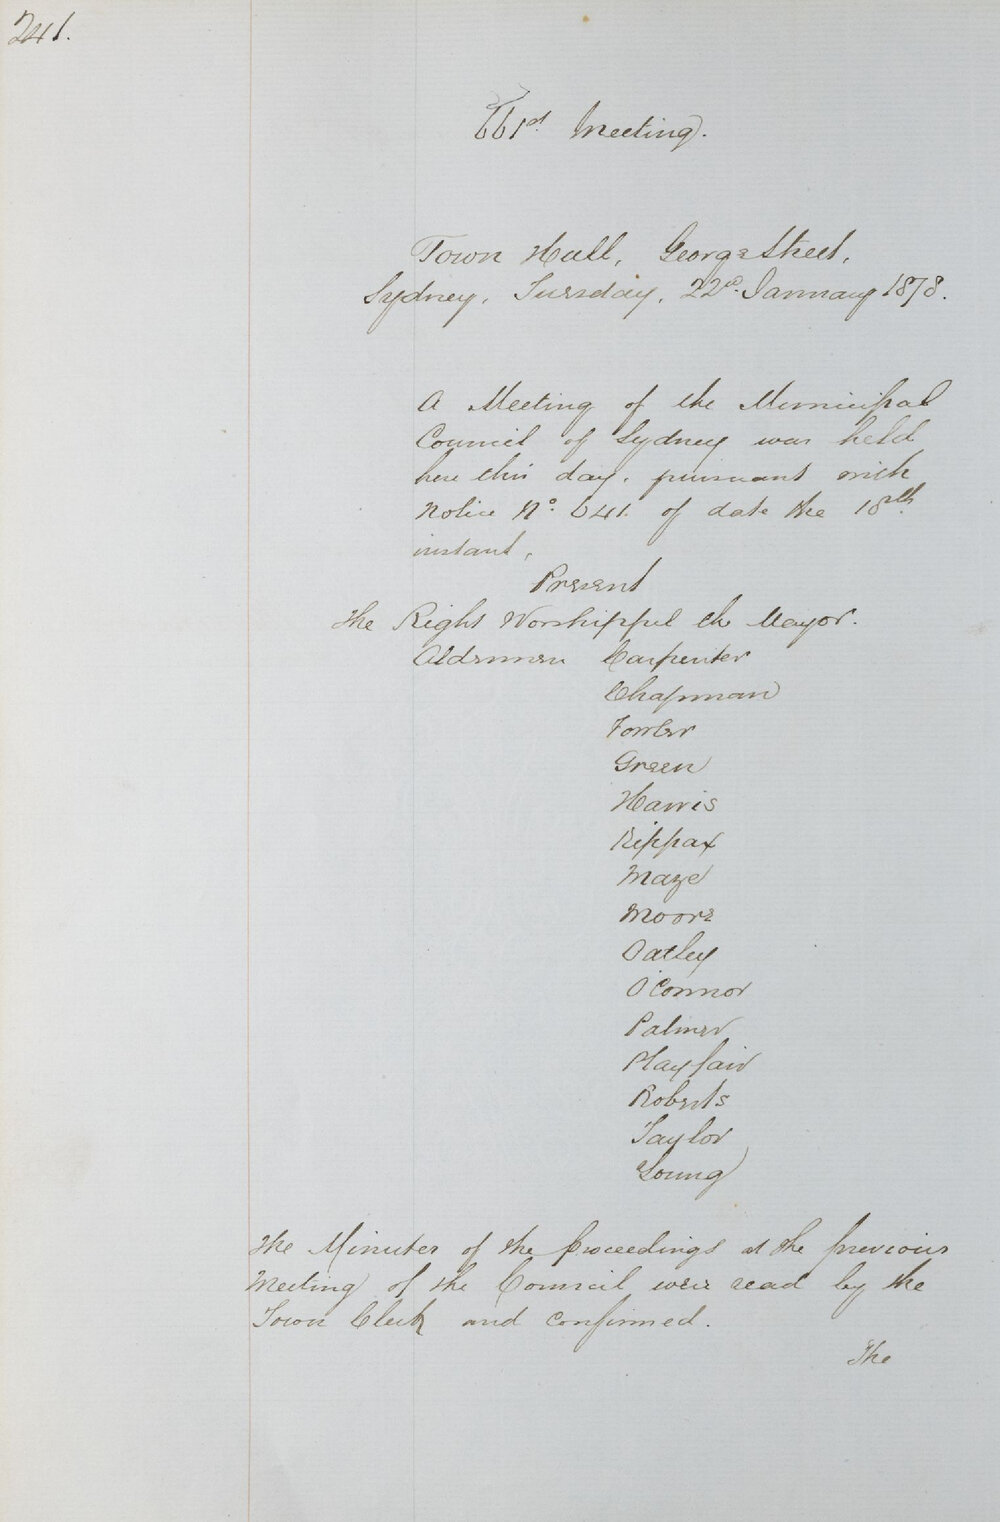 241.
661st Meeting.
Town Hall, George Street,
Sydney, Tuesday, 22nd January 1878.
A Meeting of the Municipal
Council of Sydney was held
here this day, pursuant with
Notice No. 641 of date the 18th
instant,
Present
The Right Worshipful the Mayor.
Aldermen Carpenter
Chapman
Fowler
Green
Harris
Kippax
Maze
Moore
Oatley
O'Connor
Palmer
Playfair
Roberts
Taylor
Young
The Minutes of the Proceedings at the previous
Meeting of the Council were read by the
Town Clerk and confirmed.
The